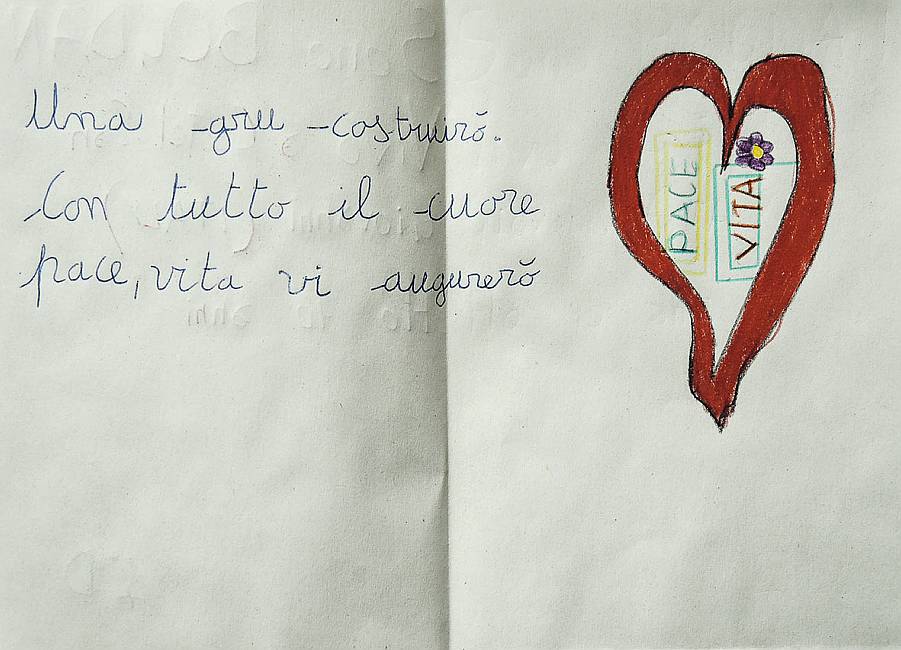 Una gru costruirò.
Con tutto il cuore
pace, vita vi augurerò
PACE
VITA